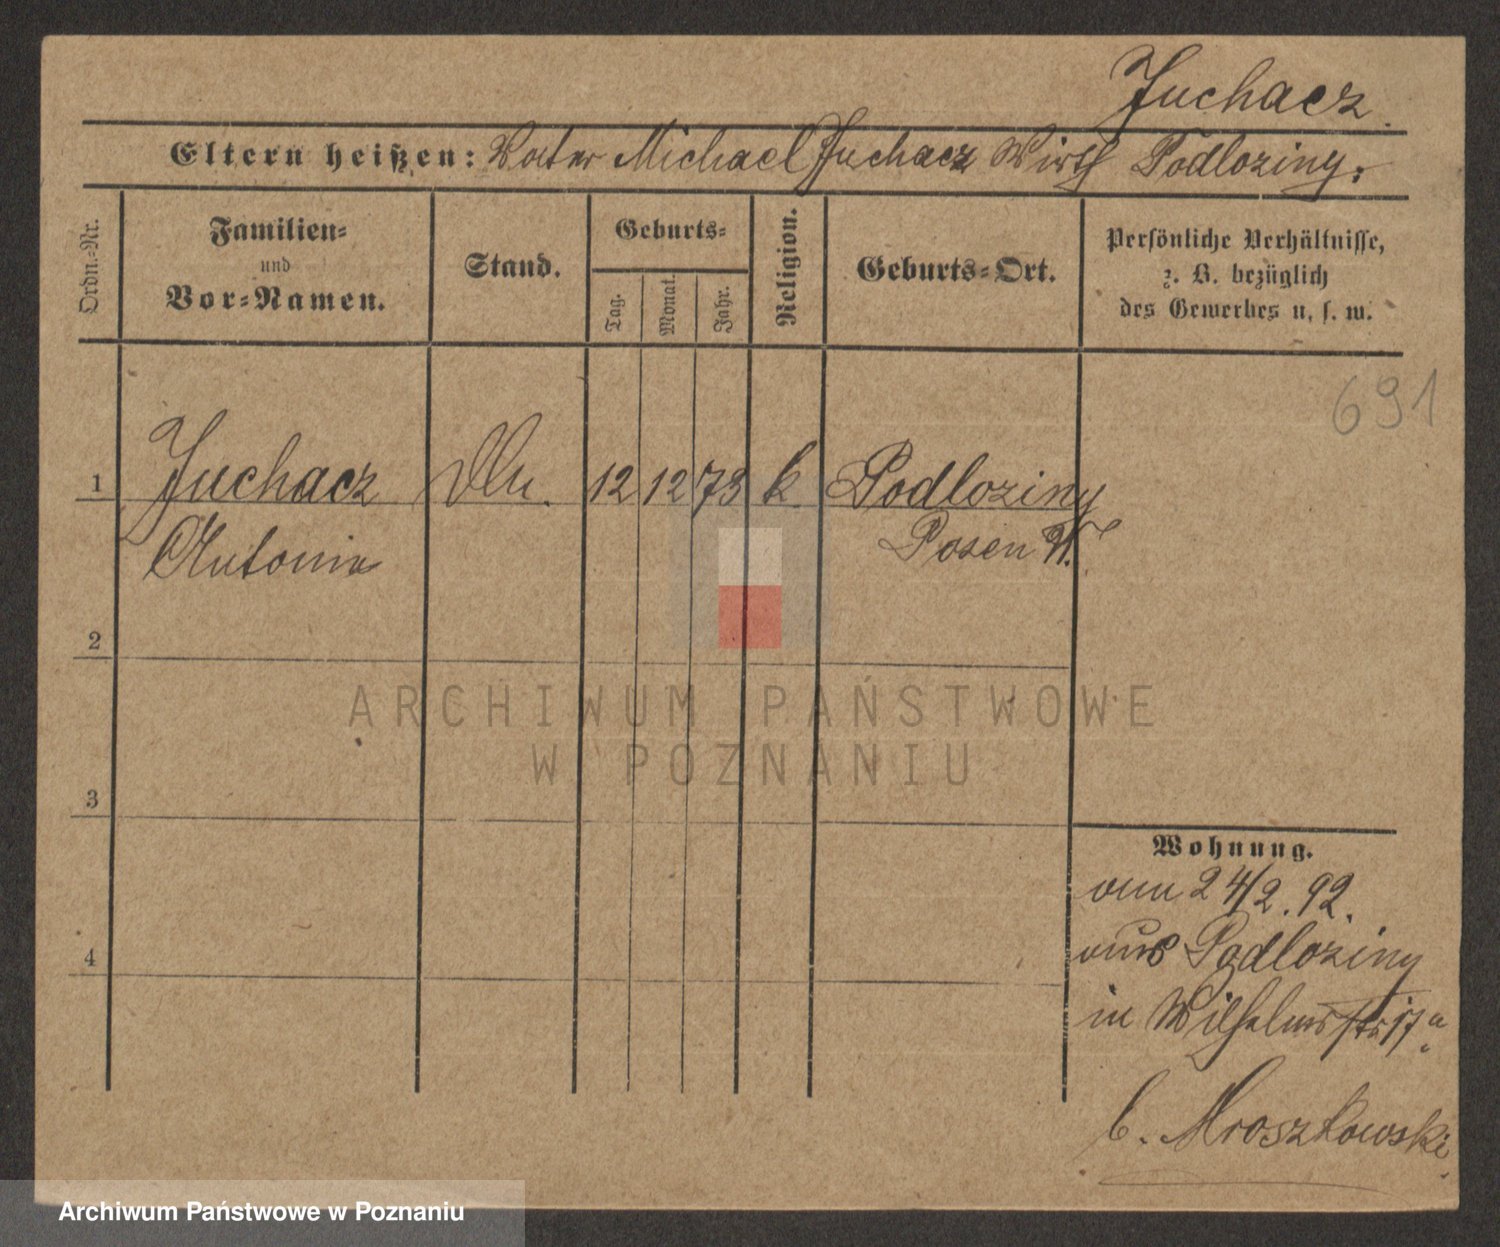 Juchacz.
Eltern heißen: Vater Michael Juchacz Wirth Podloziny.
Ordn.-Nr.
Familien-
und
Vor-Namen.
Stand.
Geburts-
Tag.
Monat.
Jahr.
Religion.
Geburts-Ort.
Persönliche Verhältnisse,
z. B. bezüglich
des Gewerbes u. s. w.
691
1 Juchacz 12 12 73 k. Podloziny
Antonie Posen W.
2
3
4
Wohnung.
vom 24/2.92.
aus Podloziny
in Wilhelmsstr 17a
b. Mroszkowski
ARCHIWUM PAŃSTWOWE
W POZNANIU
Archiwum Państwowe w Poznaniu